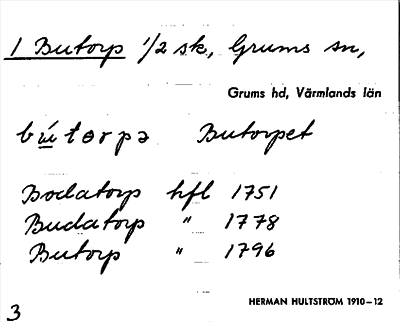 1 Butorp 1/2 sk., Grums sn,
Grums hd, Värmlands län
bu̍torpə Butorpet
Bodatorp hfl 1751
Budatorp " 1778
Butorp " 1796
HERMAN HULTSTRÖM 1910–12
3